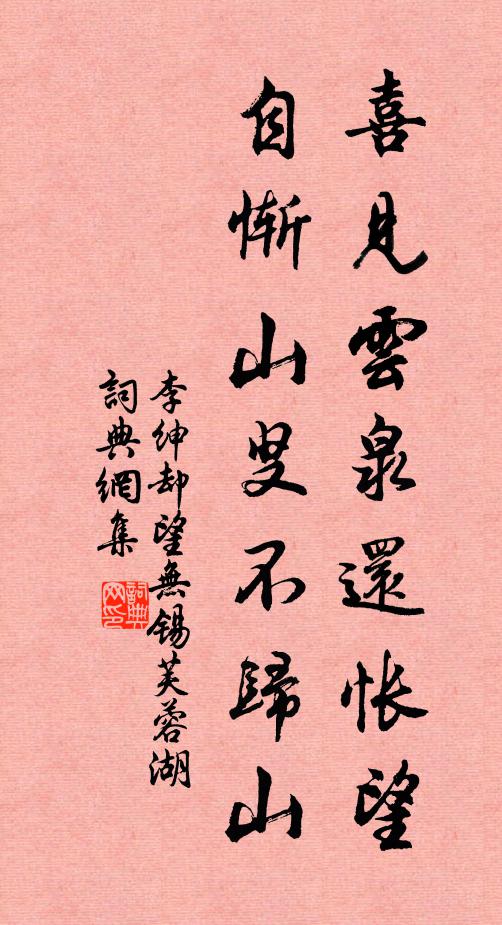 喜見雲泉還悵望
自慚山叟不歸山
李紳却望無錫芙蓉湖
詞典網集
詞典網印